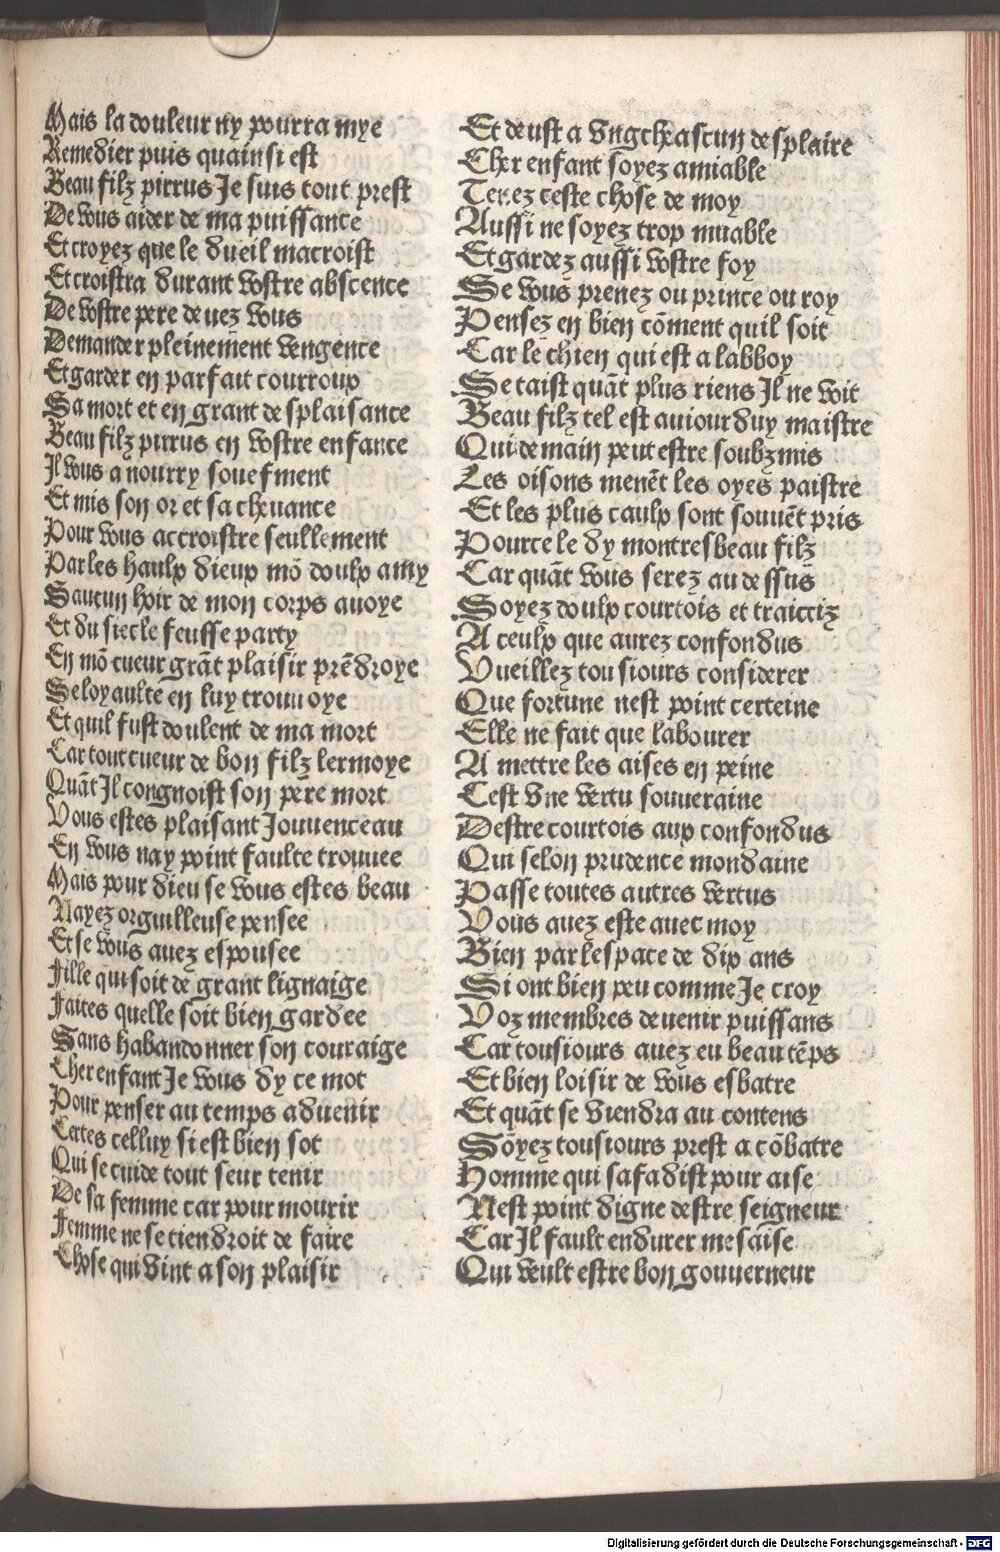 Mais la douleur ny pourra mye
Remedier puis quainsi est
Beau filz pirrus Je suis tout prest
De vous aider de ma puissance
Et croyez que le dueil macroist
Et croistra durant vostre abscence
De vostre pere deuez vous
Demander pleinement vengence
Et garder en parfait courroux
Sa mort et en grant desplaisance
Beau filz pirrus en vostre enfance
Il vous a nourry souefment
Et mis son or et sa cheuance
Pour vous accroistre seullement
Par les haulx dieux mō doulx amy
Saucun hoir de mon corps auoye
Et du siecle feusse party
En mō cueur grāt plaisir prēdroye
Se loyaulte en luy trouuoye
Et quil fust doulent de ma mort
Car tout cueur de bon filz lermoye
Quāt Il congnoist son pere mort
Vous estes plaisant Jouuenceau
En vous nay point faulte trouuee
Mais pour dieu se vous estes beau
Nayez orguilleuse pensee
Et se vous auez espousee
Fille qui soit de grant lignaige
Faites quelle soit bien gardee
Sans habandonner son couraige
Cher enfant Je vous dy ce mot
Pour penser au temps aduenir
Certes celluy si est bien sot
Qui se cuide tout seur tenir
De sa femme car pour mourir
Femme ne se tiendroit de faire
Chose qui vint a son plaisir
Et deust a vng cheascun desplaire
Cher enfant soyez amiable
Tenez ceste chose de moy
Aussi ne soyez trop muable
Et gardez aussi vostre foy
Se vous prenez ou prince ou roy
Pensez en bien cōment quil soit
Car le chien qui est a labboy
Se taist quāt plus riens Il ne voit
Beau filz tel est auiourduy maistre
Qui demain peut estre soubzmis
Les oisons menēt les oyes paistre
Et les plus caulx sont souuēt pris
Pource le dy mon tresbeau filz
Car quāt vous serez au dessus
Soyez doulx courtois et traictiz
A ceulx que aurez confondus
Vueillez tousiours considerer
Que fortune nest point certeine
Elle ne fait que labourer
A mettre les aises en peine
Cest vne vertu souueraine
Destre courtois aux confondus
Qui selon prudence mondaine
Passe toutes autres vertus
Vous auez este auec moy
Bien par lespace de dix ans
Si ont bien peu comme Je croy
Voz membres deuenir puissans
Car tousiours auez eu beau tēps
Et bien loisir de vous esbatre
Et quāt se viendra au contens
Soyez tousiours prest a cōbatre
Homme qui safadist pour aise
Nest point digne destre seigneur
Car Il fault endurer mesaise
Qui veult estre bon gouuerneur
Digitalisierung gefördert durch die Deutsche Forschungsgemeinschaft - DFG